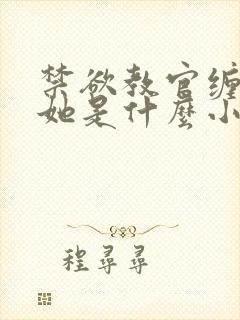 禁欲教官缠
她是什麼小
程尋尋